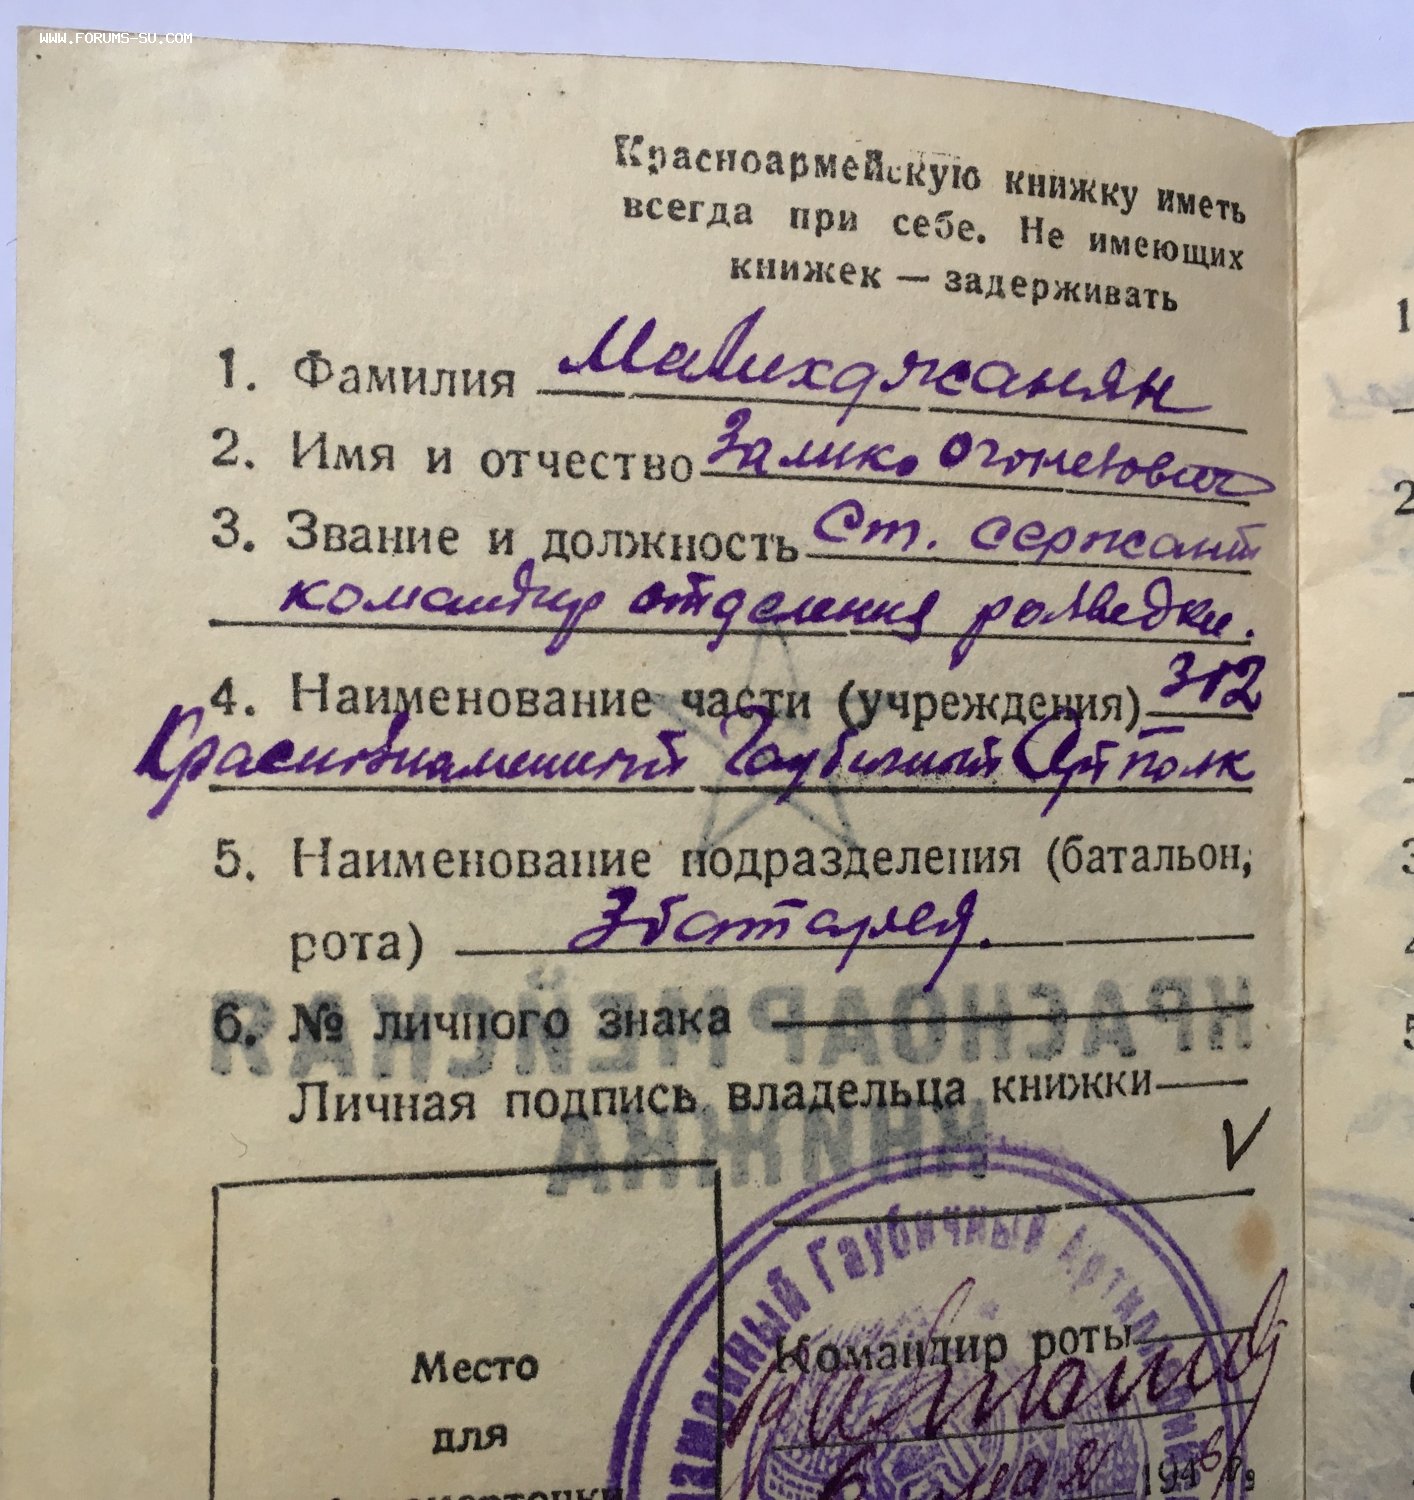 WWW.FORUMS-SU.COM
Красноармейскую книжку иметь
всегда при себе. Не имеющих
книжек — задерживать
1. Фамилия Малхиджанян
2. Имя и отчество
3. Звание и должность Ст. сержант
командир отделения разведки.
4. Наименование части (учреждения) 312
Краснознаменный Гаубичный Арт полк
5. Наименование подразделения (батальон,
рота) 3 батарея.
6. № личного знака
Личная подпись владельца книжки
V
КРАСНОАРМЕЙСКАЯ
КНИЖКА
Гаубичный
Командир роты
6 мая 1946 г.
Место
для
1
2
3
4
5